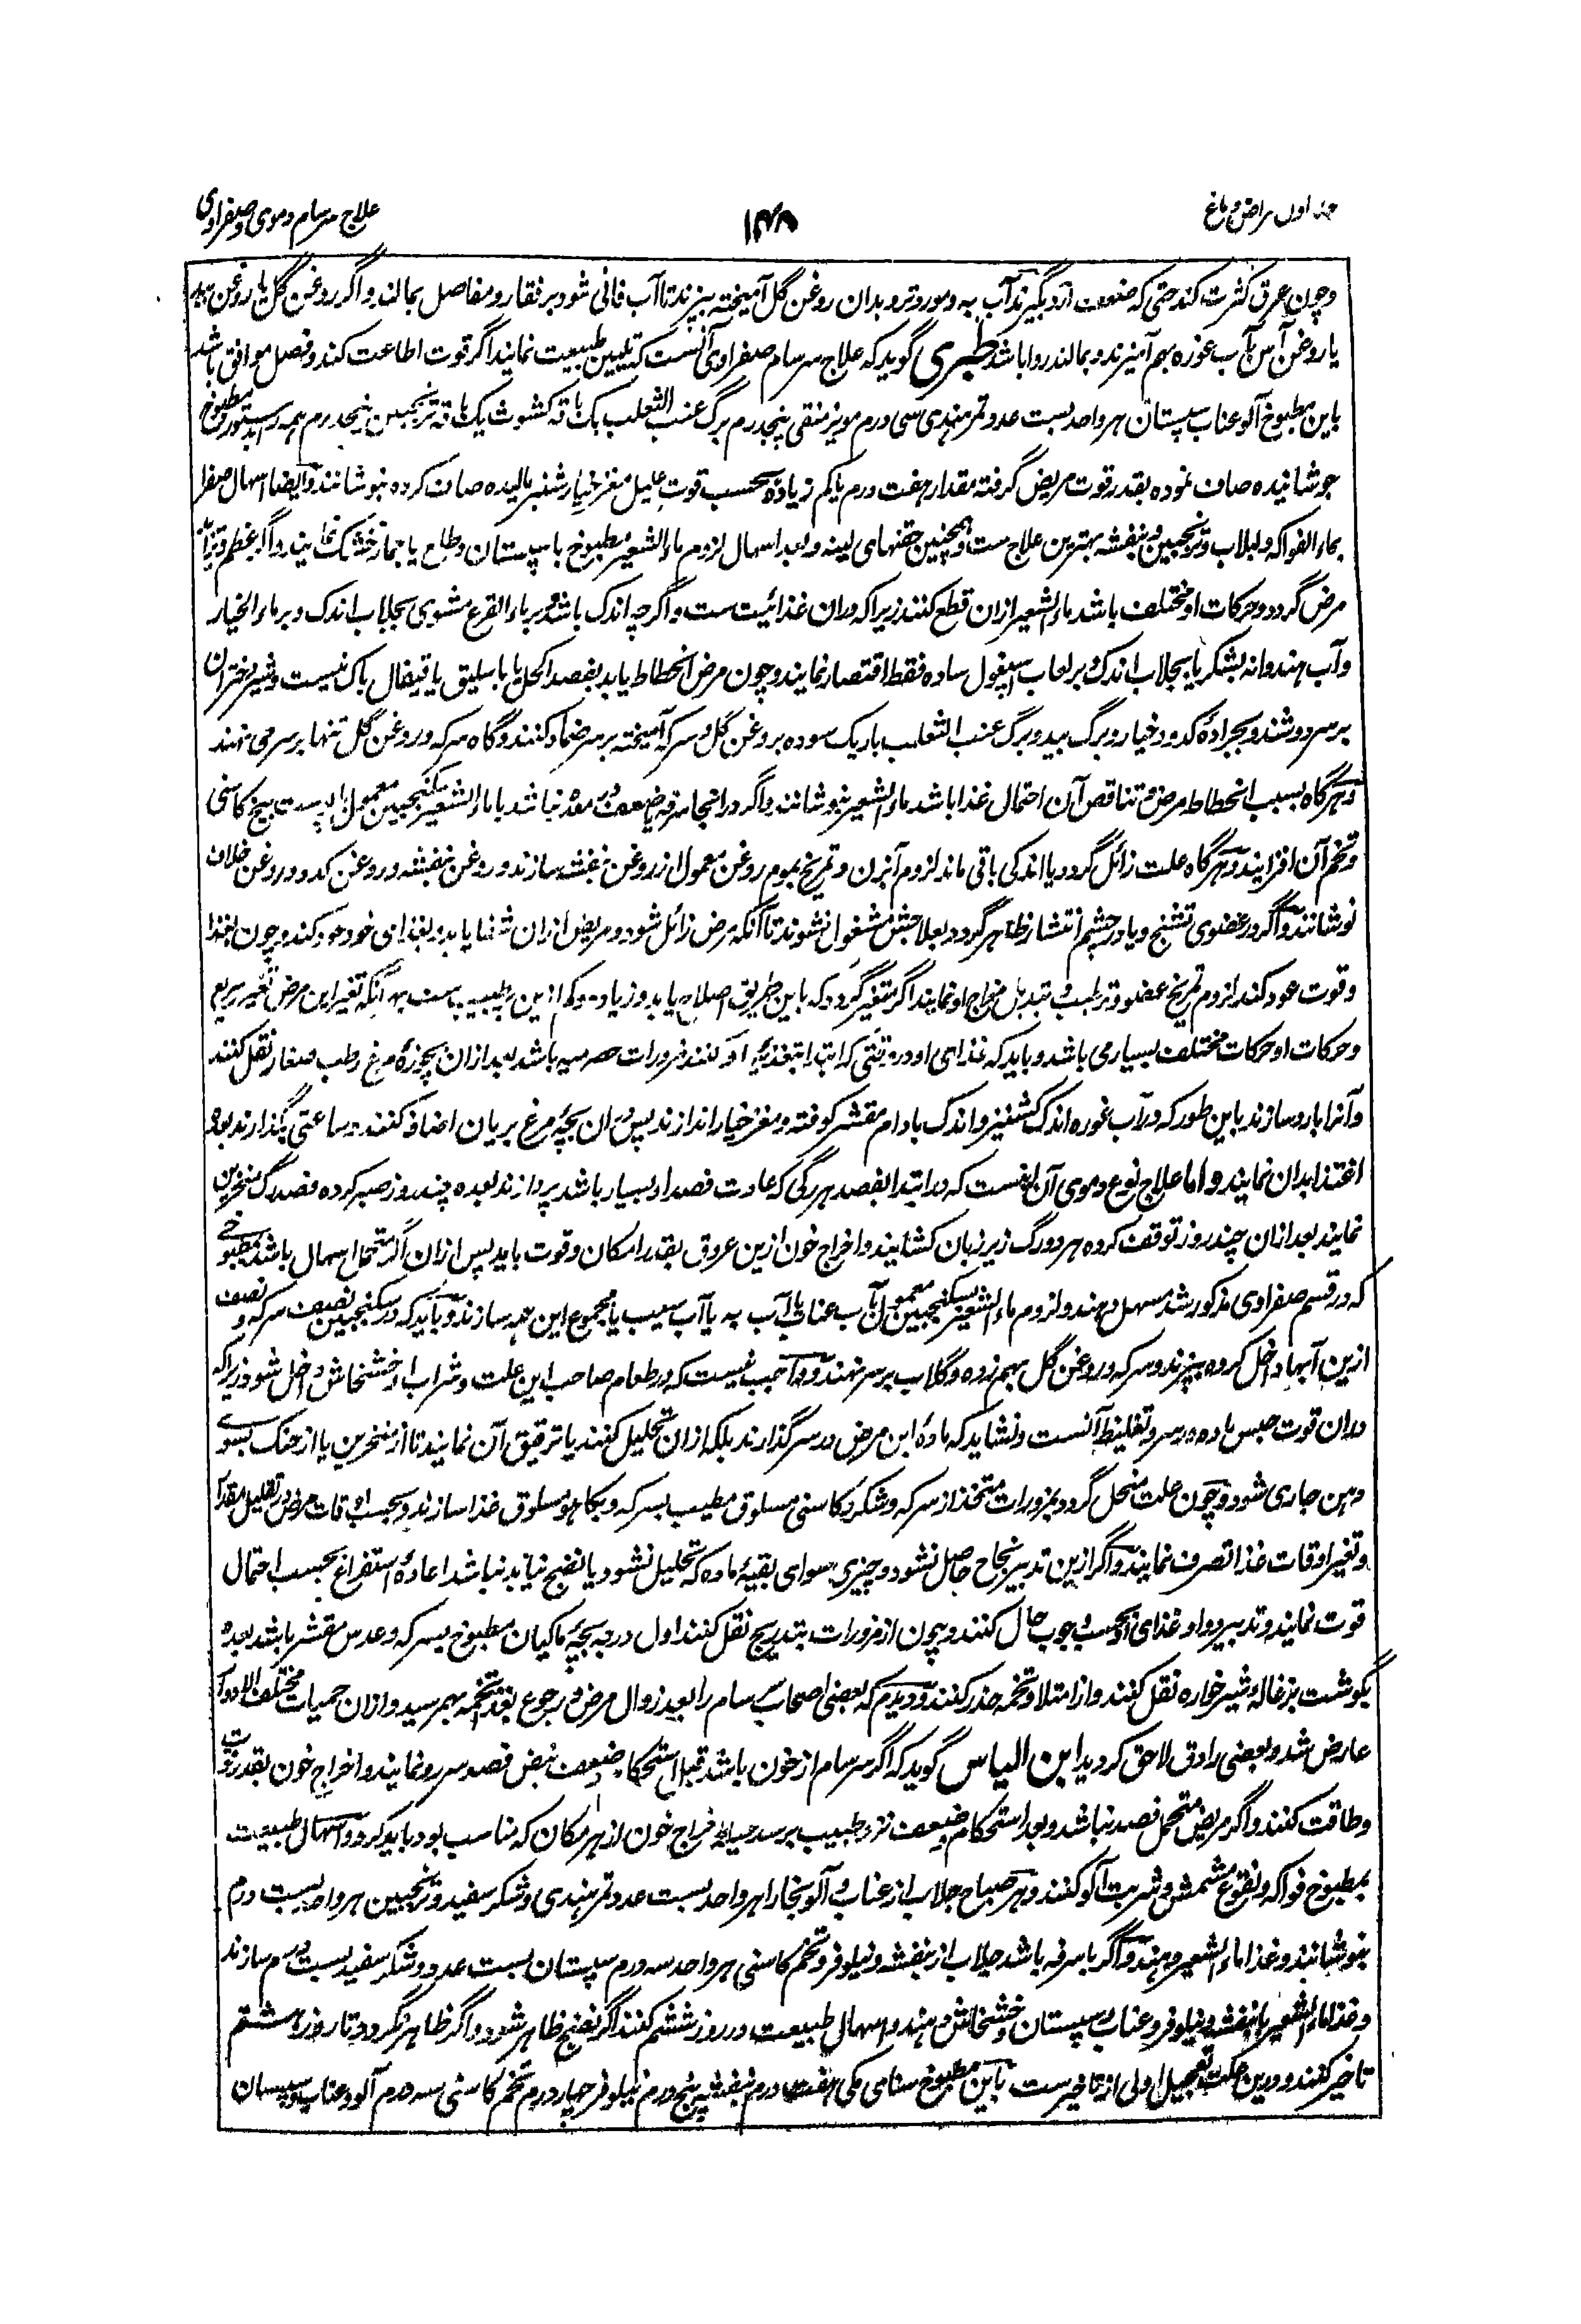 علاج سرسام دموی و صفراوی
۱۴۸
جلد اول امراض دماغ
وچون عرق کثرت کند حتی که ضعف آرد بگیرند آب به و مورد تر و بدان روغن گل آمیخته بپزند تا آب فانی شود بر فقار و مفاصل بمالند و اگر روغن گل یا روغن بید
یا روغن آس بآب غوره بهم آمیزند و بمالند روا باشد طبری گوید که علاج سرسام صفراوی آنست که تلیین طبیعت نمایند اگر قوت اطاعت کند و فصل موافق باشد
باین مطبوخ آلو عناب سپستان هر واحد بست عدد تمر هندی سی درم مویز منقی پنجدرم برگ عنب الثعلب یک باقه کشوث یک باقه ترنجبین پنجدرم همه را بدستور مطبوخ
جوشانیده صاف نموده بقدر قوت مریض گرفته مقدار هفت درم یا کم زیاده بحسب قوت علیل مغز خیار شنبر مالیده صاف کرده بنوشانند و ایضا اسهال صفرا
بماء الفواکه و لبلاب و ترنجبین و بنفشه بهترین علاج ست و همچنین حقنهای لینه و بعد اسهال لزوم ماء الشعیر مطبوخ با سپستان و طلع یا جمار خشک نمایند و اگر عظم و تزاید
مرض گردد و حرکات او مختلف باشد ماء الشعیر ازان قطع کنند زیرا که دران غذائیت ست و اگرچه اندک باشد و بر ماء القرع مشوی بجلاب اندک و بر ماء الخیار
و آب هندوانه بشکر یا بجلاب اندک و بر لعاب اسپغول ساده فقط اقتصار نمایند و چون مرض انحطاط یابد بفصد اکحل یا باسلیق یا قیفال باک نیست و شیر دختران
بر سر دوشند و بجرادهٔ کدو و خیار و برگ بید و برگ عنب الثعلب باریک سوده بروغن گل و سرکه آمیخته بر سر ضماد کنند و گاه سرکه و روغن گل تنها بر سر می نهند
و هرگاه بسبب انحطاط مرض و تناقص آن احتمال غذا باشد ماء الشعیر بنوشانند و اگر در انجا سرفه و ضعف معده نباشد با ماء الشعیر سکنجبین معمول از پوست بیخ کاسنی
و تخم آن افزایند و هرگاه علت زائل گردد یا اندکی باقی ماند لزوم آبزن و تمریخ بموم روغن معمول از روغن بنفشه سازند و روغن بنفشه و روغن کدو و روغن خلاف
نوشانند و اگر در عضوی تشنج و یا در چشم انتشار ظاهر گردد بعلاجش مشغول نشوند تا آنکه مرض زائل شود و مریض ازان شفا یابد و بغذای خود عود کند و چون بغذا
و قوت عود کند لزوم تمریخ عضو و ترطیب و تبدیل مزاج او نمایند اگر متغیر گردد که باین طریق اصلاح یابد و زیاده که ازین بر طبیب ست بهر آنکه تغیر این مرض تغیر سریع
و حرکات او حرکات مختلف بسیار می باشد و باید که غذای او در وقتی که ابتدا بتغذیهٔ او کنند مزورات حصرمیه باشد بعد ازان بچوزهٔ مرغ رطب صغار نقل کنند
و آنرا بارد سازند باین طور که در آب غوره اندک کشنیز و اندک بادام مقشر کوفته و مغز خیار اندازند پس دران بچهٔ مرغ بریان اضافه کنند و ساعتی بگذارند بعده
اغتذا بدان نمایند و اما علاج نوع دموی آن اینست که در ابتدا بفصد هر رگی که عادت فصد او بسیار باشد پردازند بعده چند روز صبر کرده فصد رگ منخرین
نمایند بعد ازان چند روز توقف کرده هر دو رگ زیر زبان کشایند و اخراج خون ازین عروق بقدر امکان و قوت باید پس ازان اگر متحمل اسهال باشد مطبوخی
که در قسم صفراوی مذکور شد مسهل دهند و لزوم ماء الشعیر سکنجبین معمول از آب عناب یا آب به یا آب سیب یا مجموع این همه سازند و باید که در سکنجبین نصف سرکه و نصف
ازین آبها داخل کرده بپزند و سرکه و روغن گل بهم زده و گلاب بر سر نهند و واجب نیست که در طعام صاحب این علت و شراب او خشخاش داخل شود زیرا که
دران قوت حبس ماده در سر و تغلیظ آنست و نشاید که مادهٔ این مرض در سر گذارند بلکه ازان تحلیل کنند یا ترقیق آن نمایند تا از منخرین یا از حنک بسوی
دهن جاری شود و چون علت منحل گردد بمزورات متخذ از سرکه و شکر و کاسنی مسلوق مطیب بسرکه و بکاهو مسلوق غذا سازند و بحسب اوقات مرض در تقلیل مقدار
و تغیر اوقات غذا تصرف نمایند و اگر ازین تدبیر نجاح حاصل نشود و چیزی سوای بقیهٔ ماده که تحلیل نشود یا نضج نیابد نباشد اعادهٔ استفراغ بحسب احتمال
قوت نمایند و تدبیر دوا و غذای او بحسب وجوب حال کنند و چون از مزورات بتدریج نقل کنند اول درجه بچهٔ ماکیان مطبوخ بسرکه و عدس مقشر باشد بعده
بگوشت بزغالهٔ شیرخواره نقل کنند و از امتلا و تخمه حذر کنند و دیدم که بعضی اصحاب سرسام را بعد زوال مرض و رجوع بغذا تخمه بهمرسید و ازان حمیات مختلف الادوار
عارض شد و بعضی را دق لاحق گردید ابن الیاس گوید که اگر سرسام از خون باشد قبل استحکام ضعف نبض فصد سررو نمایند و اخراج خون بقدر قوت
و طاقت کنند و اگر مریض متحمل فصد نباشد و بعد استحکام ضعف نزد طبیب برسد حیلهٔ اخراج خون از هر مکان که مناسب بود باید کرد و اسهال طبیعت
بمطبوخ فواکه و نقوع مشمش و شربت آلو کنند و هر صباح جلاب از عناب و آلو بخارا هر واحد بست عدد و تمر هندی و شکر سفید و ترنجبین هر واحد بست درم
بنوشانند و غذا ماء الشعیر دهند و اگر با سرفه باشد جلاب از بنفشه و نیلوفر و تخم کاسنی هر واحد سه درم سپستان بست عدد و شکر سفید بست درم سازند
و غذا ماء الشعیر با بنفشه و نیلوفر و عناب و سپستان و خشخاش دهند و اسهال طبیعت در روز ششم کنند اگر نضج ظاهر شود و اگر ظاهر نگردد تا روز هشتم
تاخیر کنند و درین علت تعجیل اولی از تاخیر ست باین مطبوخ سنای مکی هفت درم بنفشه پنج درم نیلوفر چهار درم تخم کاسنی سه درم آلو و عناب و سپستان